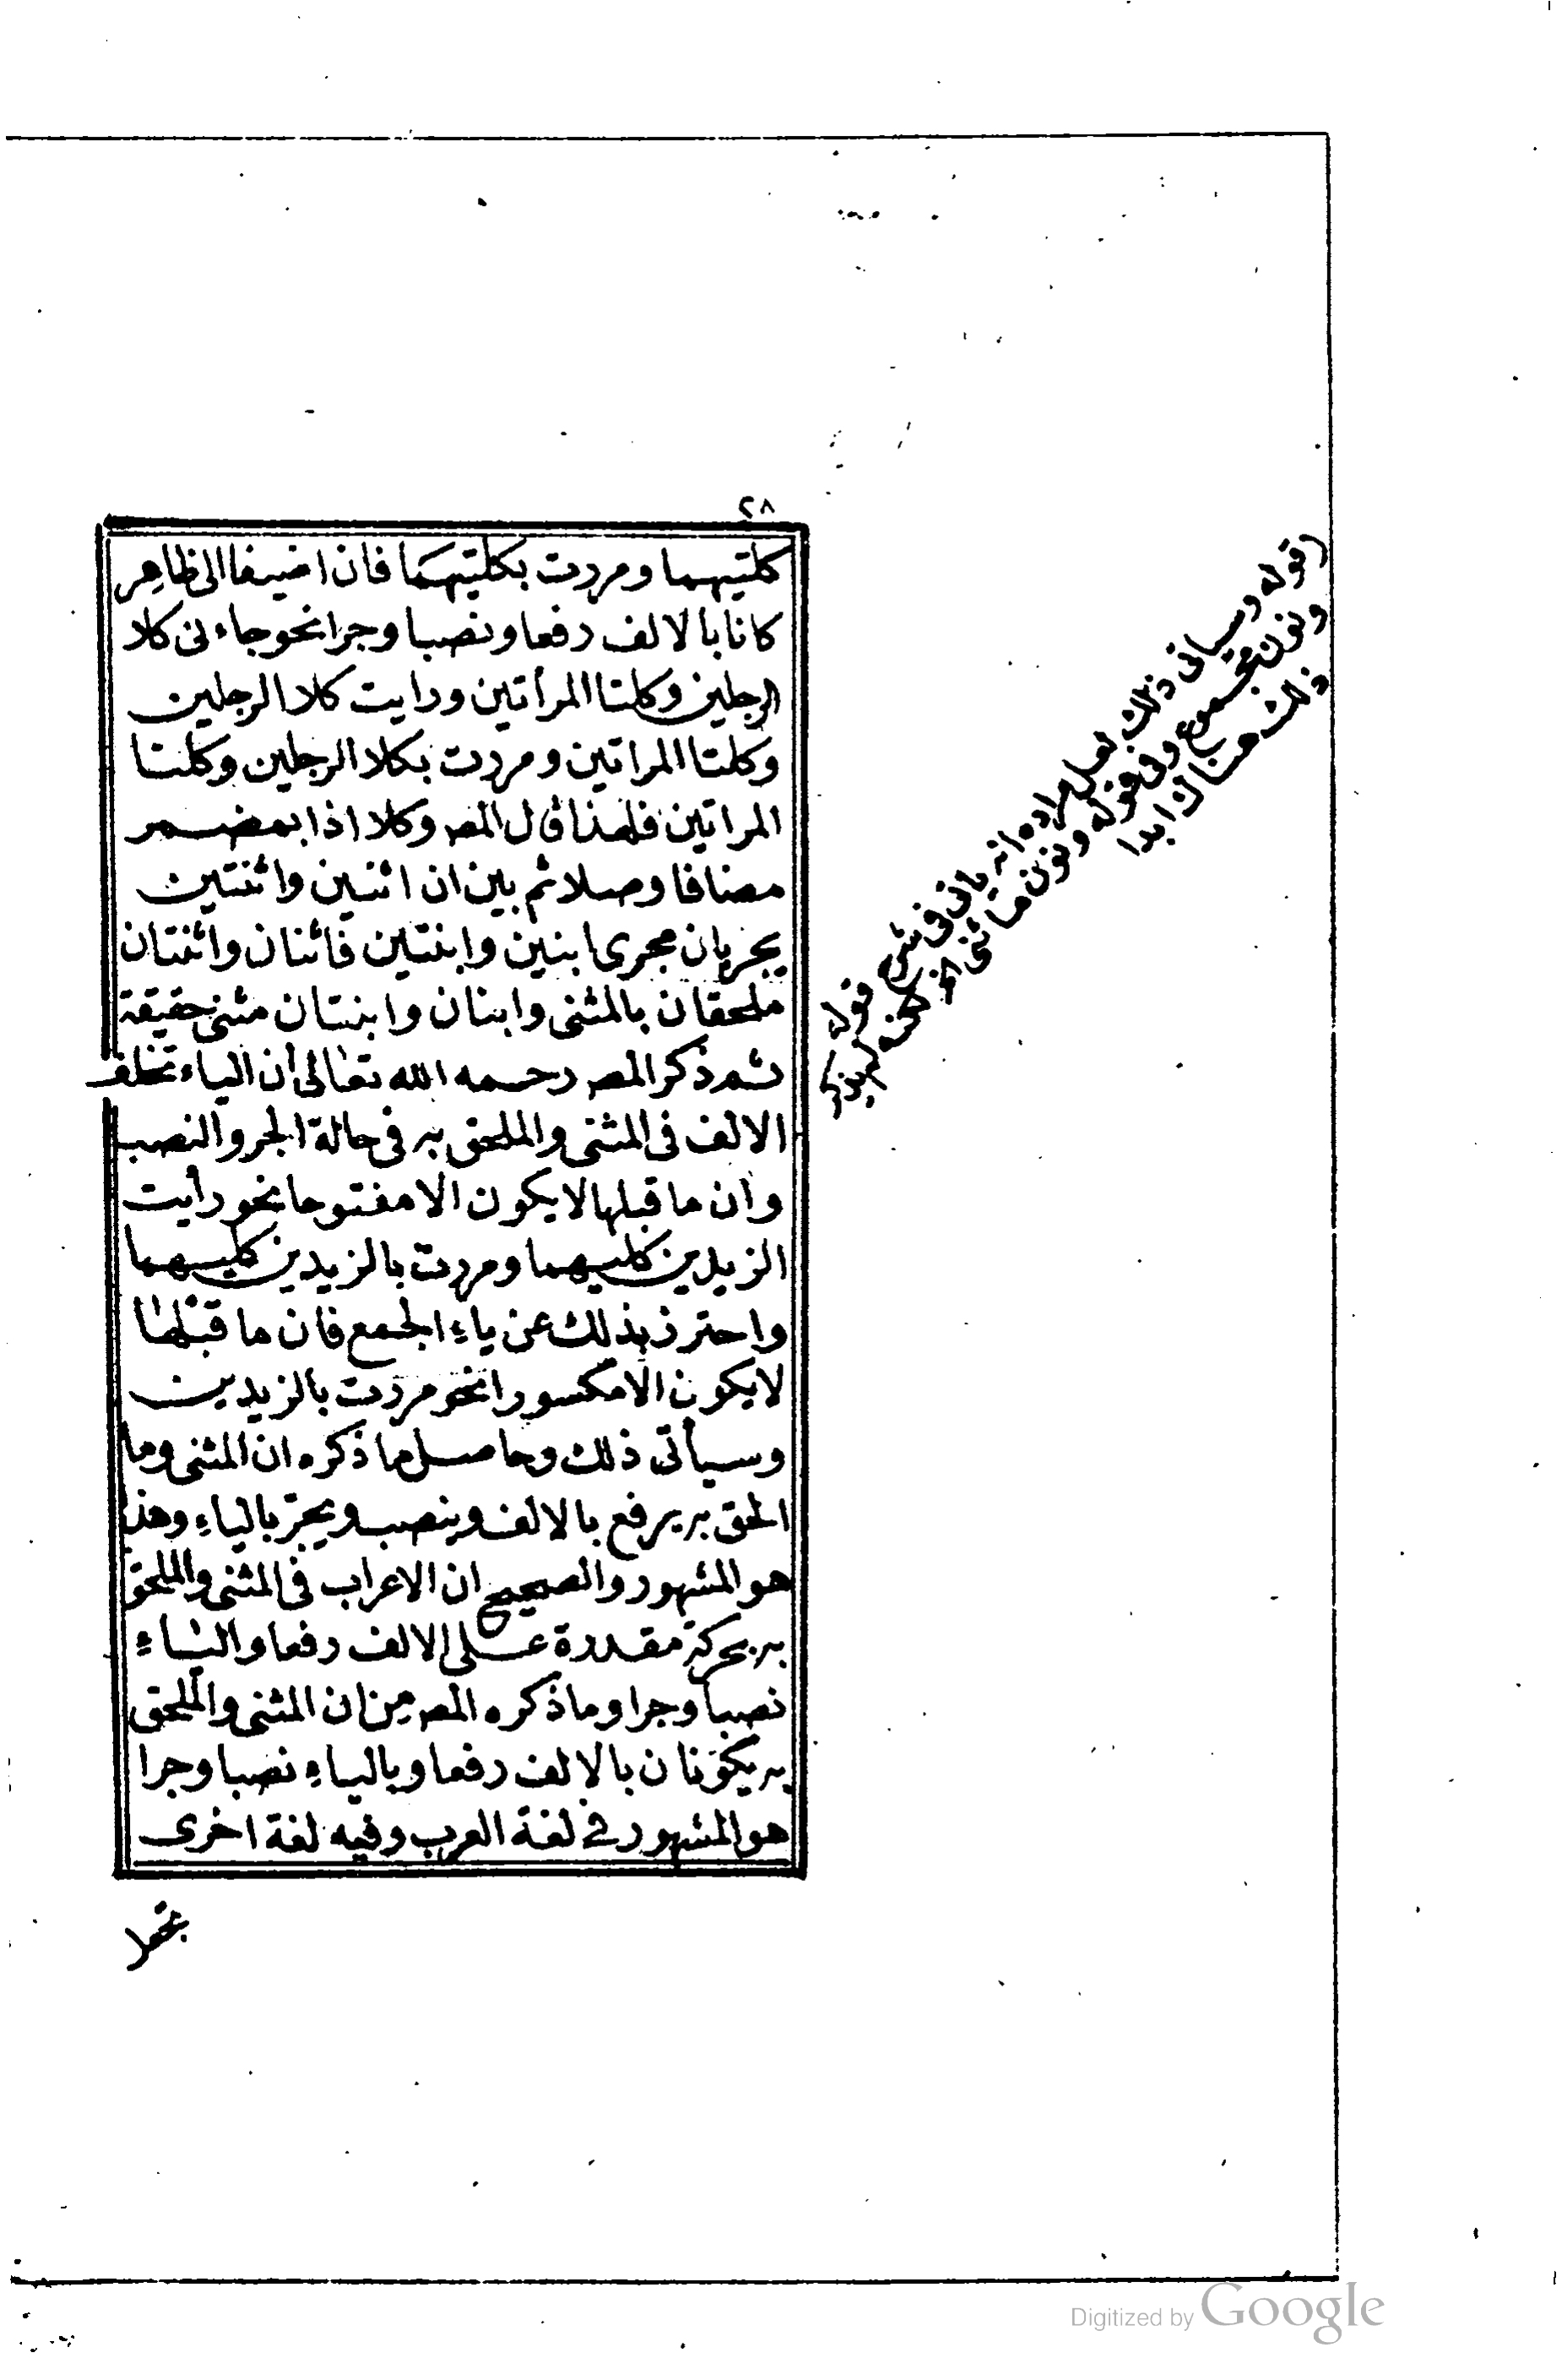 ٢٨
كلتيهما ومررت بكلتيهما فان اضيفا الى ظاهر
كانا بالالف رفعا ونصبا وجرا نحو جاءنى كلا
الرجلين وكلتا المرأتين ورايت كلا الرجلين
وكلتا المراتين ومررت بكلا الرجلين وكلتا
المراتين فلهذا قال المصـ وكلا اذا بمضمر
مضافا وصلا ثم بين ان اثنين واثنتين
يجريان مجرى ابنين وابنتين فاثنان واثنتان
ملحقان بالمثنى وابنان وابنتان مثنى حقيقة
ثم ذكر المصـ رحمه الله تعالى أن الياء تخلف
الالف فى المثنى والملحق به فى حالة الجر والنصب
وان ما قبلها لا يكون الا مفتوحا نحو رأيت
الزيدين كليهما ومررت بالزيدين كليهما
واحترز بذلك عن ياء الجمع فان ما قبلها
لا يكون الا مكسورا نحو مررت بالزيدين
وسيأتى ذلك وحاصل ما ذكره ان المثنى وما
الحق به يرفع بالالف وينصب ويجرّ بالياء وهذا
هو المشهور والصحيح ان الاعراب فى المثنى والملحق
به بحركة مقدرة على الالف رفعا والياء
نصبا وجرا وما ذكره المصـ من ان المثنى والملحق
به يكونان بالالف رفعا وبالياء نصبا وجرا
هو المشهور فى لغة العرب وفيه لغة اخرى
(قوله وسياتى ذلك لعل مراده انه ياتى فى شرح قوله
ونون مجموع وفى قوله ونون ما ثنى الخ
ذلك هناك ابدا
Digitized by Google